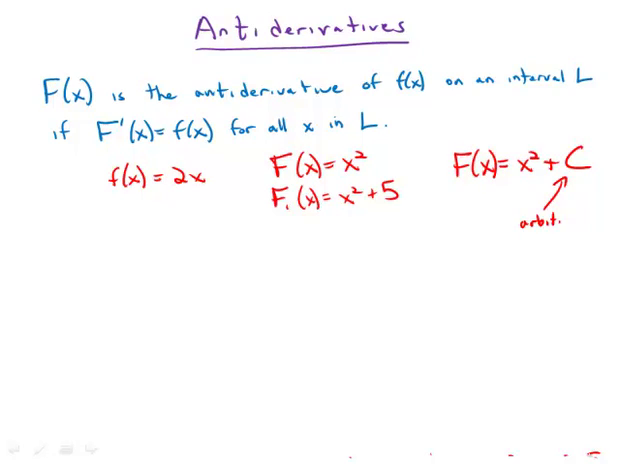 Antiderivatives
F(x) is the antiderivative of f(x) on an interval L
if F'(x) = f(x) for all x in L.
f(x) = 2x F(x) = x² F(x) = x² + C
F₁(x) = x² + 5
arbit.